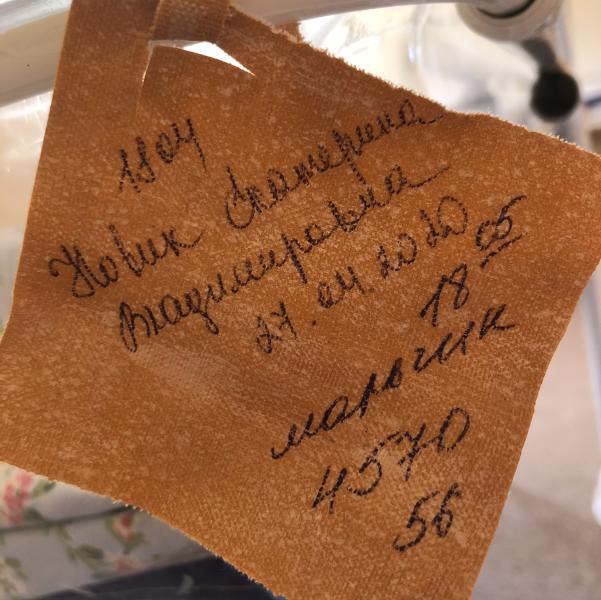 1804
Новик Екатерина
Владимировна
27.04.2020
18 05
мальчик
4570
56